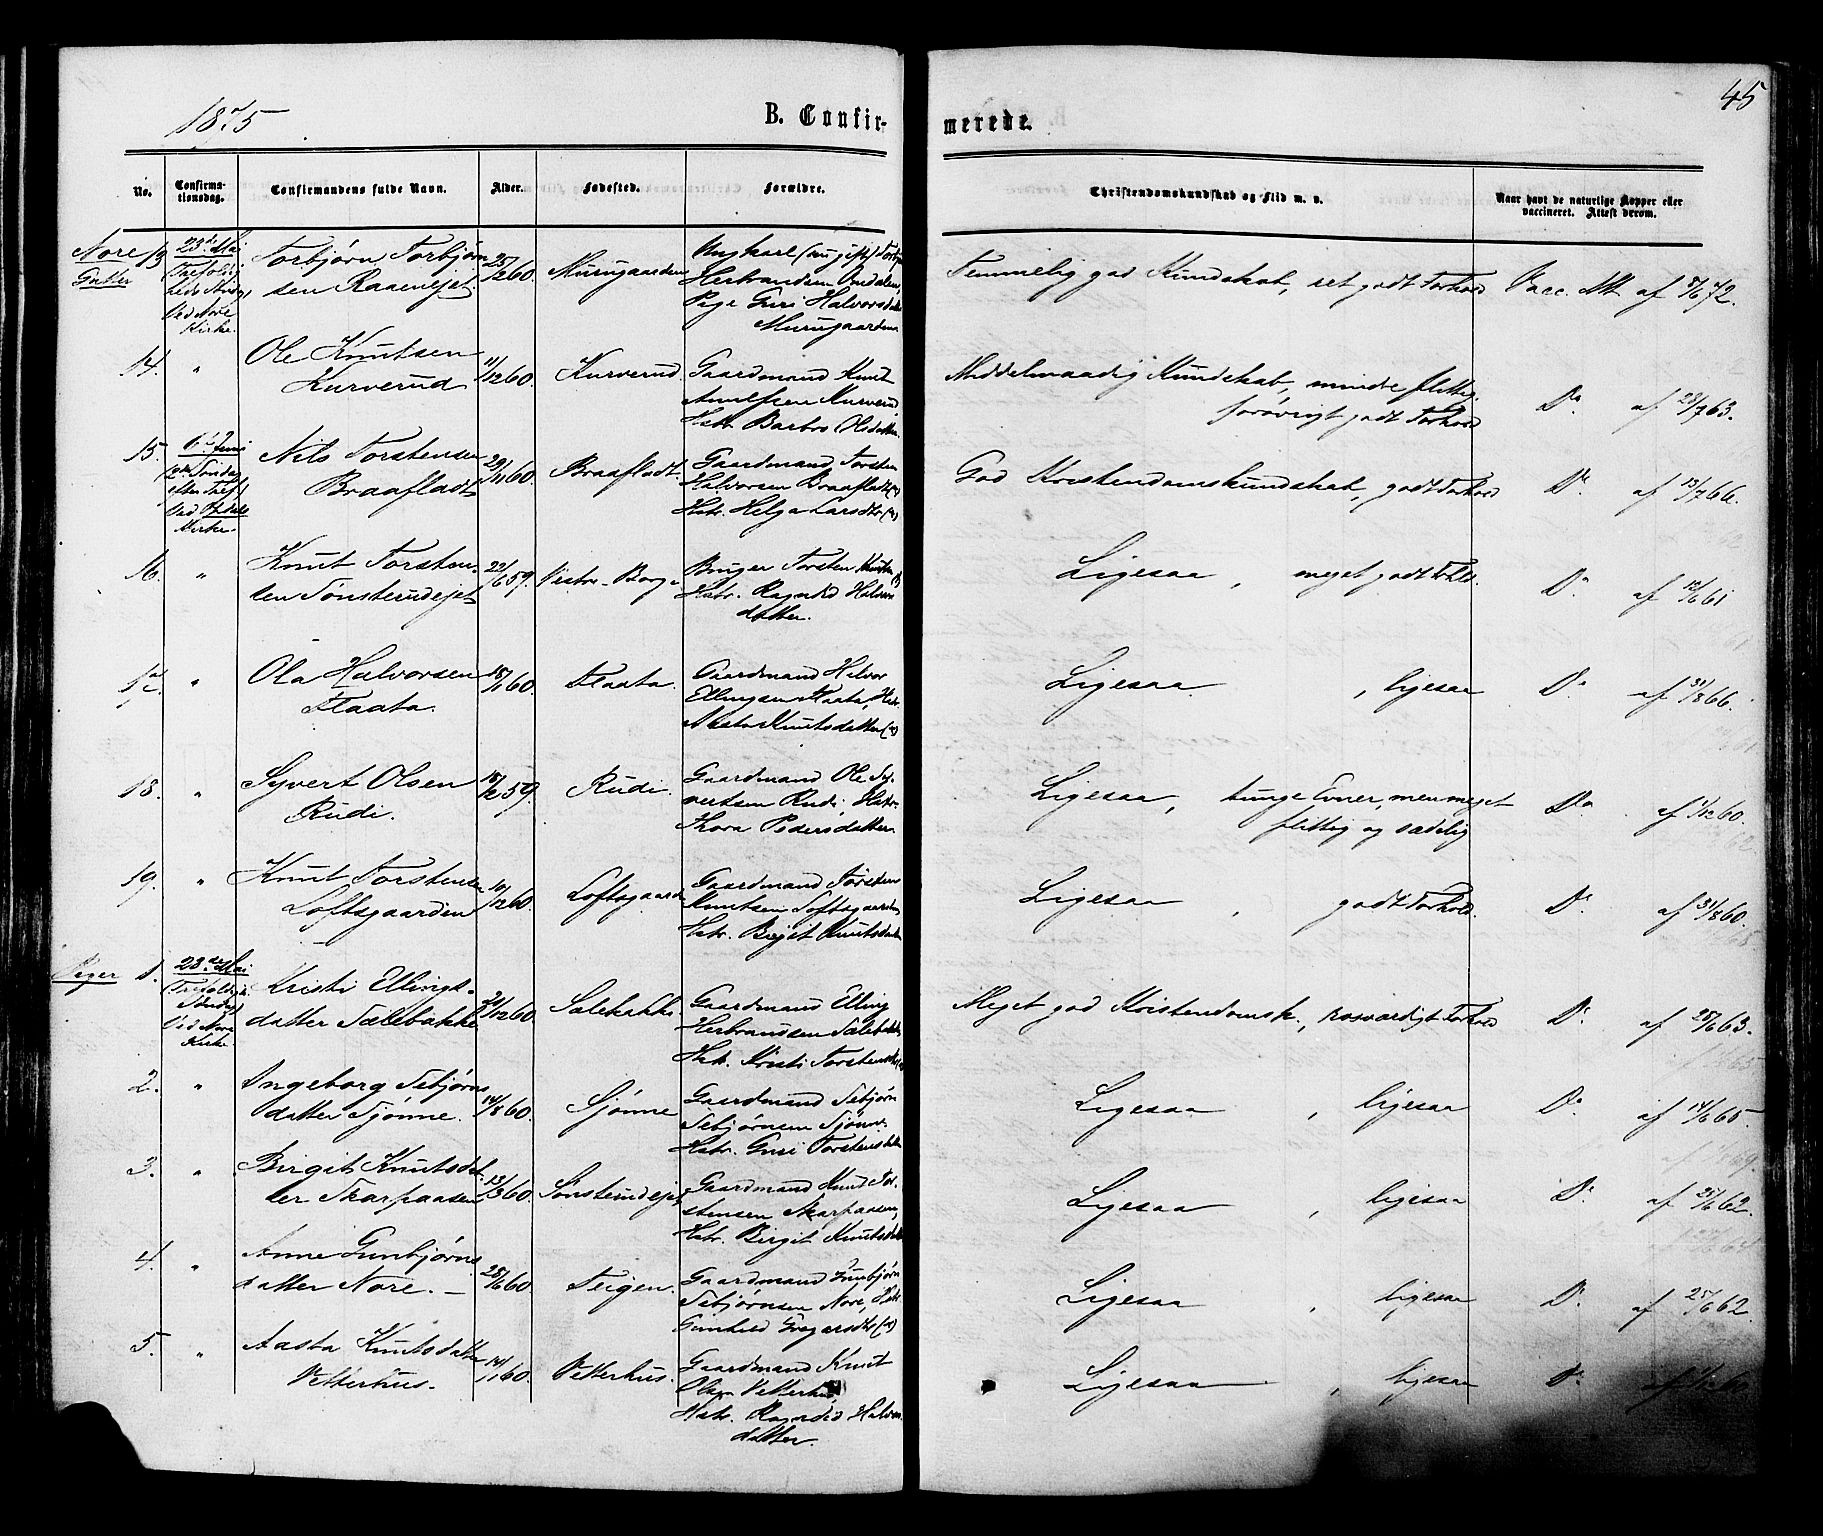 1875
B. Confir-
merede.
45
No.
Confirma-
tionsdag.
Confirmandens fulde Navn.
Alder.
Fødested.
Forældre.
Christendomskundskab og Flid m. v.
Naar havt de naturlige Kopper eller
vaccineret. Attest derom.
Nore
Gutter
13
23de Mai
Ved Nore
Kirke.
Torbjørn Torbjørn-
sen Raaenejet.
25/2 60.
Murugaarden
Ungkarl (nu gift) Torbjørn
Herbrandsen
Pige Guri Halvorsdatter
Murugaarden
Temmelig god Kundskab, ret godt Forhold
Vacc. Att. af 8/6 72.
14.
"
Ole Knutsen
Kurverud
11/12 60.
Kurverud.
Gaardmand Knut
Kurverud,
Hstr. Barbro Olsdatter.
Middelmaadig Kundskab, mindre flittig,
forøvrigt godt Forhold
Do. af 28/7 63.
15.
6te Juni
(2den Søndag
efter Tref.)
Ved Opdals
Kirke.
Nils Torstensen
Braafladt.
29/11 60.
Braafladt.
Gaardmand Torsten
Halvorsen Braafladt
Hstr. Helga Larsdtr.
God Kristendomskundskab, godt Forhold
Do. af 13/7 66.
16.
"
Knut Torsten-
sen Sønsterudejet
22/6 59.
Vestre-Borge
Torsten Knutsen
Hstr. Ragnild Halvors-
datter.
Ligesaa, meget godt Forhld.
Do. af 12/6 61
17.
"
Ola Halvorsen
Flaata.
18/1 60.
Flaata.
Gaardmand Halvor
Ellingsen Flaata, Hstr.
Aasta Knutsdatter
Ligesaa, ligesaa
Do. af 31/8 66.
18.
"
Syvert Olsen
Rudi.
59.
Rudi.
Gaardmand Ole Sy-
vertsen Rudi, Hstr.
Thora Pedersdatter.
Ligesaa, tunge Evner, men meget
flittig og sædelig
Do. af 1/12 60.
19.
"
Knut Torstensen
Loftsgaarden
10/12 60.
Loftsgaarden
Gaardmand Torsten
Knutsen Loftsgaarden
Hstr. Birgit Knutsdatter
Ligesaa, godt Forhold.
Do. af 31/8 60.
Piger
1.
23de Mai
(Trefoldigh.
Søndag)
Ved Nore
Kirke
Kristi Ellings-
datter Sælebakke
31/12 60.
Sælebakke.
Gaardmand Elling
Herbrandsen Sælebakke,
Hstr. Kristi Torstensdtr
Meget god Kristendomsk., rosværdigt Forhold
Do. af 28/6 63.
2.
"
Ingeborg Tebjørns-
datter Sjønne.
14/8 60.
Sjønne
Gaardmand Tebjørn
Tebjørnsen Sjønne
Hstr. Guri Torstensdatter
Ligesaa, ligesaa
Do. af 14/6 65.
3.
"
Birgit Knutsdat-
ter Skarpaasen
13/3 60.
Sønsterudejet
Gaardmand Knud Tor-
stensen Skarpaasen,
Hstr. Birgit Knutsdatter
Ligesaa, ligesaa
Do. af 25/6 62.
4.
"
Anne Gunbjørns-
datter Nore. –
28/6 60.
Teigen.
Gaardmand Gunbjørn
Tebjørnsen Nore, Hstr.
Gunhild
Ligesaa, ligesaa
Do. af 25/6 62.
5.
"
Aasta Knutsdatter
Vetterhus.
14/1 60.
Vetterhus.
Gaardmand Knut
Olsen Vetterhus,
Hstr. Ragndid Halvors-
datter.
Ligesaa, ligesaa
Do. af